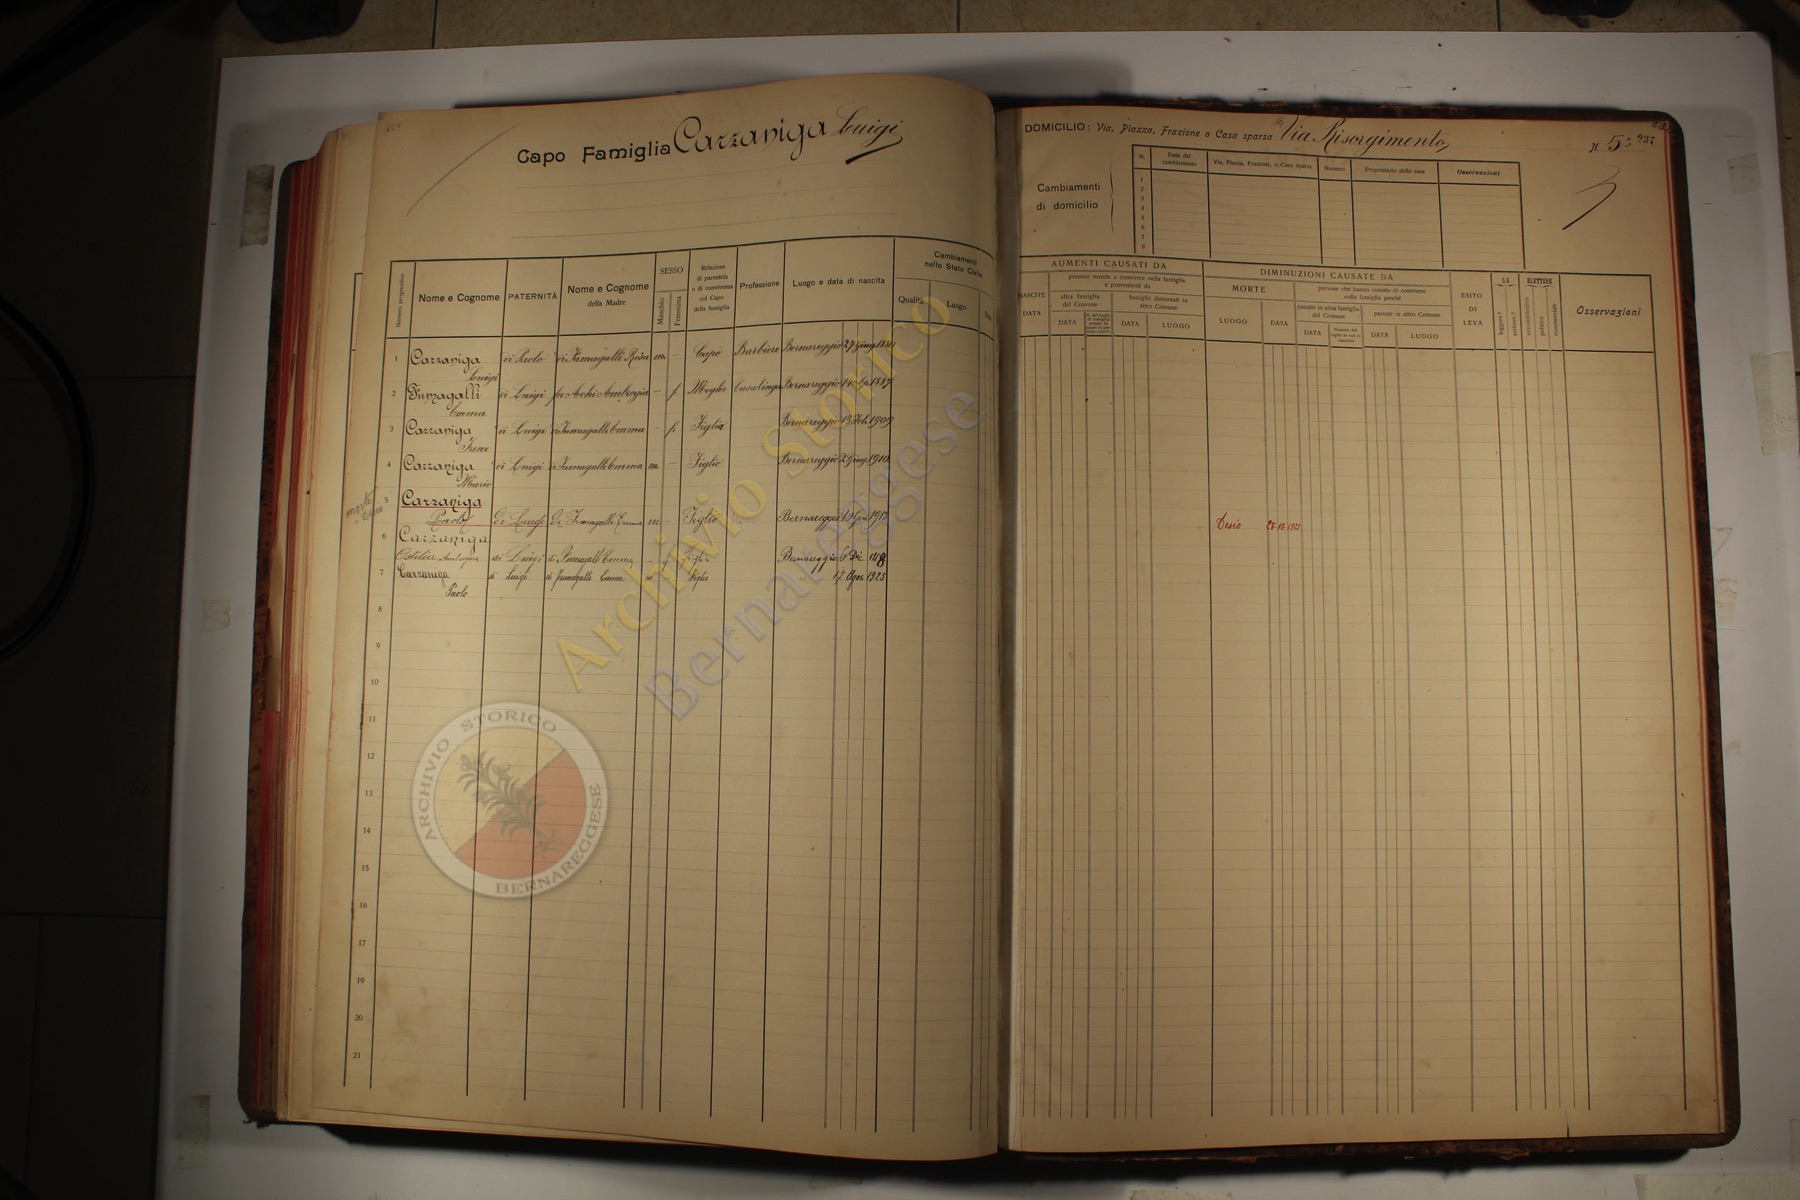 Capo Famiglia Cazzaniga Luigi
Numero progressivo
Nome e Cognome
PATERNITÀ
Nome e Cognome
della Madre
SESSO
Maschio
Femmina
Relazione
di parentela
o di convivenza
col Capo
della famiglia
Professione
Luogo e data di nascita
Cambiamenti
nello Stato Civile
Qualità
Luogo
1 Cazzaniga di Paolo di Fumagalli Rosa m. – Capo Barbiere Bernareggio 27 Giug.
Luigi
2 Fumagalli di Luigi Ambrogia – f. Moglie Casalinga Bernareggio 14 1887
Emma
3 Cazzaniga di Luigi di Fumagalli Emma – f. Figlia Bernareggio 13 Feb. 1909
Irene
4 Cazzaniga di Luigi di Fumagalli Emma m. – Figlio Bernareggio 2 Giug. 1910
Mario
5 Cazzaniga
Paolo di Luigi di Fumagalli Emma m – Figlio Bernareggio 1913
morto
6 Cazzaniga
di Luigi di Fumagalli Emma – f Figlia Bernareggio 6 Dic
7 Cazzaniga di Luigi di Fumagalli Emma m Figlio " 17 Agos 1925
Paolo
8
9
10
11
12
13
14
15
16
17
18
19
20
21
DOMICILIO: Via, Piazza, Frazione o Casa sparsa Via Risorgimento
N. 5 237
Cambiamenti
di domicilio
N.
Data del
cambiamento
Via, Piazza, Frazione, o Casa sparsa
Numero
Proprietario della casa
Osservazioni
1
2
3
4
5
6
7
8
AUMENTI CAUSATI DA
NASCITE
DATA
persone venute a convivere nella famiglia
e provenienti da
altra famiglia
del Comune
DATA
famiglie dimoranti in
altro Comune
DATA
LUOGO
DIMINUZIONI CAUSATE DA
MORTE
LUOGO
DATA
persone che hanno cessato di convivere
nella famiglia perchè
passate in altra famiglia
del Comune
DATA
passate in altro Comune
DATA
LUOGO
ESITO
DI
LEVA
SA
leggere?
scrivere?
ELETTORE
amministrativo
politico
commerciale
Osservazioni
Desio
Archivio Storico
Bernareggese
ARCHIVIO STORICO
BERNAREGGESE